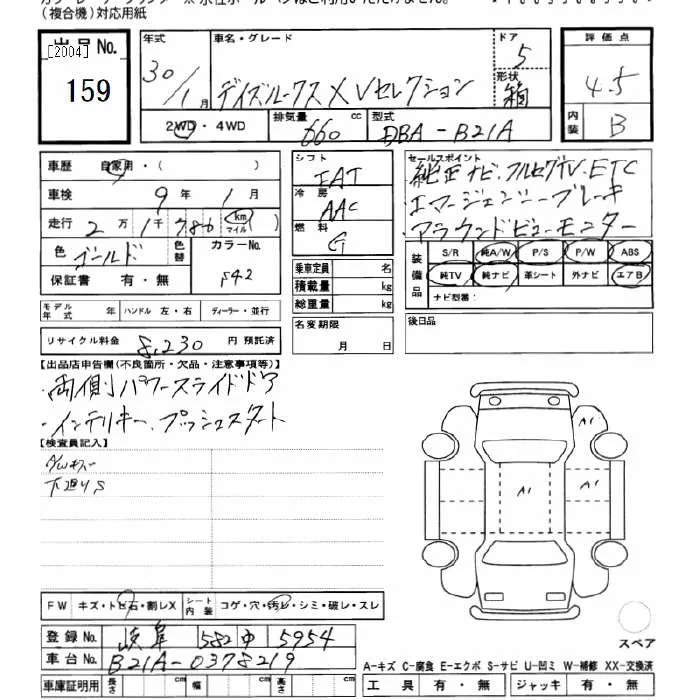 (複合機)対応用紙
出品No.
[2004]
159
年式 30/1月
車名・グレード デイズルークス X Vセレクション
ドア 5
形状 箱
評価点 4.5
内装 B
2WD・4WD
排気量 660 cc
型式 DBA-B21A
車歴 自家用・( )
車検 9年 1月
走行 2万1千786 km マイル
色 ゴールド 色替
カラーNo. S42
保証書 有・無
モデル年式 年
ハンドル 左・右
ディーラー・並行
リサイクル料金 8,230 円 預託済
シフト IAT
冷房 AAC
燃料 G
乗車定員 名
積載量 kg
総重量 kg
名変期限 月 日
セールスポイント
・純正ナビ.フルセグTV.ETC
・エマージェンシーブレーキ
・アラウンドビューモニター
装備品
S/R 純A/W P/S P/W ABS
純TV 純ナビ 革シート 外ナビ エアB
ナビ型番:
後日品
【出品店申告欄(不良箇所・欠品・注意事項等)】
・両側パワースライドドア
・インテリキー.プッシュスタート
【検査員記入】
下廻りS
A1
A1
A1
スペア
FW キズ・トビ石・割レX
シート内装 コゲ・穴・汚レ・シミ・破レ・スレ
登録No. 岐阜 582 5954
車台No. B21A-0378219
車庫証明用 長さ cm 幅 cm 高さ cm
A-キズ C-腐食 E-エクボ S-サビ U-凹ミ W-補修 XX-交換済
工具 有・無 ジャッキ 有・無